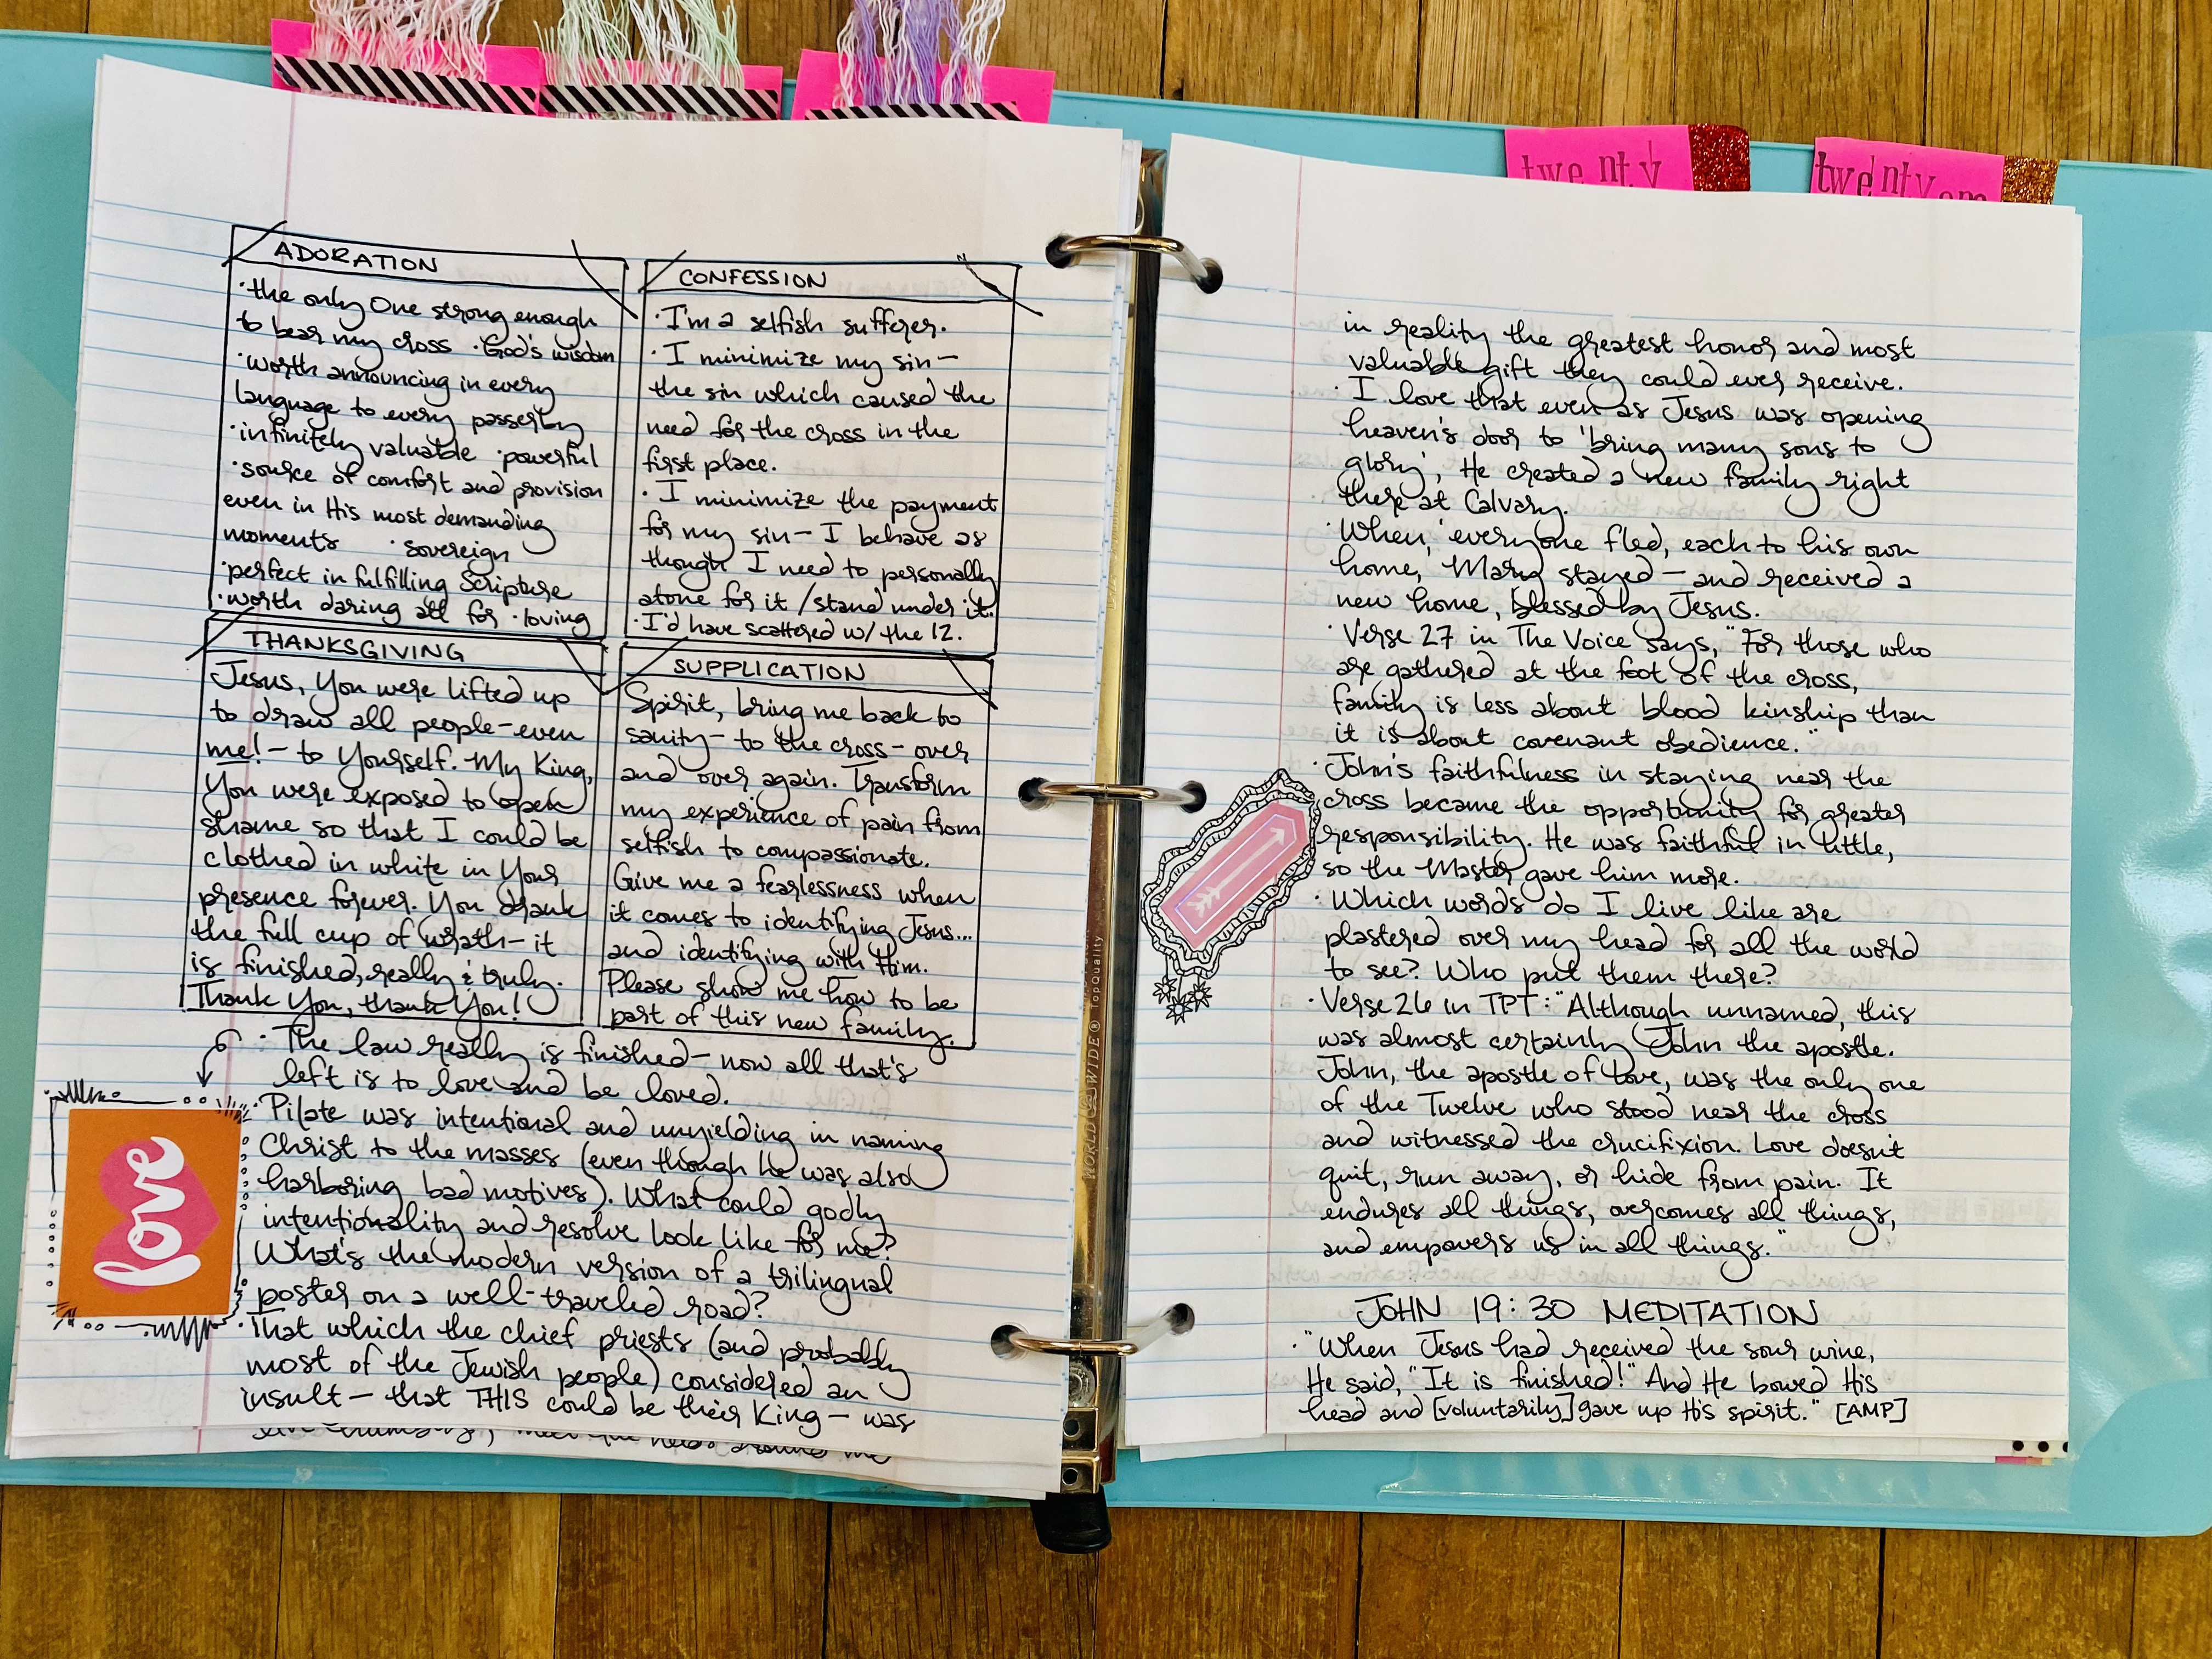 twenty
ADORATION
· the only One strong enough
to bear my cross · God's wisdom
· worth announcing in every
language to every passerby
· infinitely valuable · powerful
· source of comfort and provision
even in His most demanding
moments · sovereign
· perfect in fulfilling Scripture
· worth daring all for · loving
CONFESSION
· I'm a selfish sufferer.
· I minimize my sin—
the sin which caused the
need for the cross in the
first place.
· I minimize the payment
for my sin— I behave as
though I need to personally
atone for it / stand under it.
· I'd have scattered w/ the 12.
THANKSGIVING
Jesus, You were lifted up
to draw all people—even
me!— to Yourself. My King,
You were exposed to open
shame so that I could be
clothed in white in Your
presence forever. You drank
the full cup of wrath— it
is finished, really & truly.
Thank You, thank You!
SUPPLICATION
Spirit, bring me back to
sanity— to the cross— over
and over again. Transform
my experience of pain from
selfish to compassionate.
Give me a fearlessness when
it comes to identifying Jesus...
and identifying with Him.
Please show me how to be
part of this new family.
· The law really is finished— now all that's
left is to love and be loved.
· Pilate was intentional and unyielding in naming
Christ to the masses (even though he was also
harboring bad motives). What could godly
intentionality and resolve look like for me?
What's the modern version of a trilingual
poster on a well-traveled road?
· That which the chief priests (and probably
most of the Jewish people) considered an
insult— that THIS could be their King— was
love
WORLD WIDE® TopQuality
in reality the greatest honor and most
valuable gift they could ever receive.
· I love that even as Jesus was opening
heaven's door to 'bring many sons to
glory', He created a new family right
there at Calvary.
· When, 'everyone fled, each to his own
home,' Mary stayed— and received a
new home, blessed by Jesus.
· Verse 27 in The Voice says, "For those who
are gathered at the foot of the cross,
family is less about blood kinship than
it is about covenant obedience."
· John's faithfulness in staying near the
cross became the opportunity for greater
responsibility. He was faithful in little,
so the Master gave him more.
· Which words do I live like are
plastered over my head for all the world
to see? Who put them there?
· Verse 26 in TPT: "Although unnamed, this
was almost certainly John the apostle.
John, the apostle of love, was the only one
of the Twelve who stood near the cross
and witnessed the crucifixion. Love doesn't
quit, run away, or hide from pain. It
endures all things, overcomes all things,
and empowers us in all things."
JOHN 19:30 MEDITATION
· "When Jesus had received the sour wine,
He said, "It is finished!" And He bowed His
head and [voluntarily] gave up His spirit." [AMP]